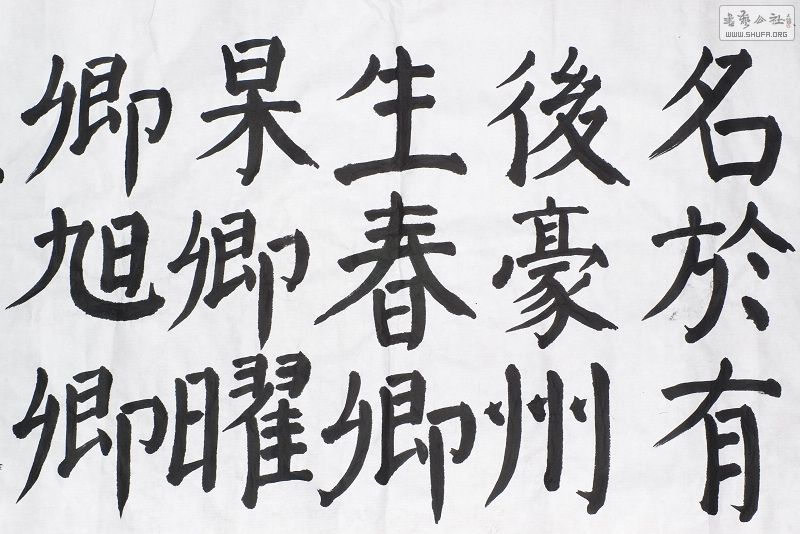 名於有
後豪州
生春卿
杲卿曜
卿旭卿
書藝公社
WWW.SHUFA.ORG